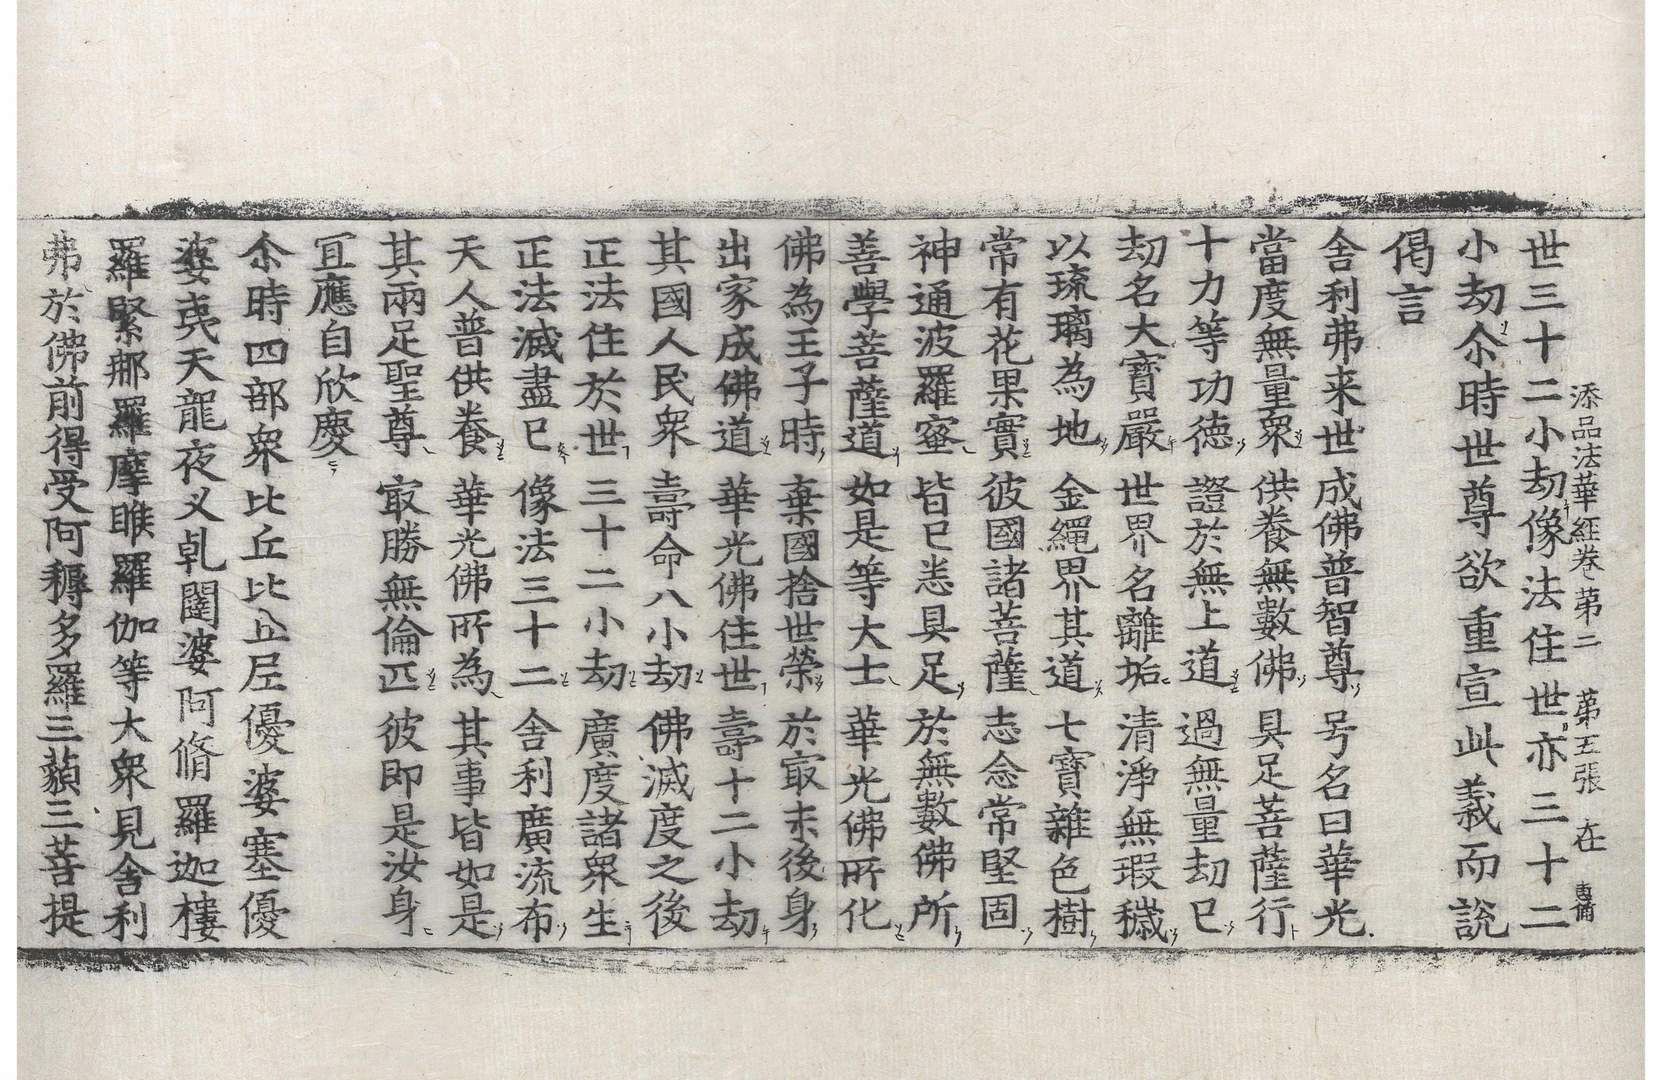 添品法華經卷第二 第五張 在
世三十二小劫像法住世亦三十二
小劫尒時世尊欲重宣此義而說
偈言
舍利弗来世 成佛普智尊 号名曰華光
當度無量衆 供養無數佛 具足菩薩行
十力等功德 證於無上道 過無量劫已
劫名大寶嚴 世界名離垢 清淨無瑕穢
以琉璃為地 金繩界其道 七寶雜色樹
常有花果實 彼國諸菩薩 志念常堅固
神通波羅蜜 皆已悉具足 於無數佛所
善學菩薩道 如是等大士 華光佛所化
佛為王子時 棄國捨世榮 於㝡末後身
出家成佛道 華光佛住世 壽十二小劫
其國人民衆 壽命八小劫 佛滅度之後
正法住於世 三十二小劫 廣度諸衆生
正法滅盡已 像法三十二 舍利廣流布
天人普供養 華光佛所為 其事皆如是
其兩足聖尊 㝡勝無倫匹 彼即是汝身
冝應自欣慶
尒時四部衆比丘比丘尼優婆塞優
婆夷天龍夜叉乹闥婆阿脩羅迦樓
羅緊那羅摩睺羅伽等大衆見舍利
弗於佛前得受阿耨多羅三藐三菩提